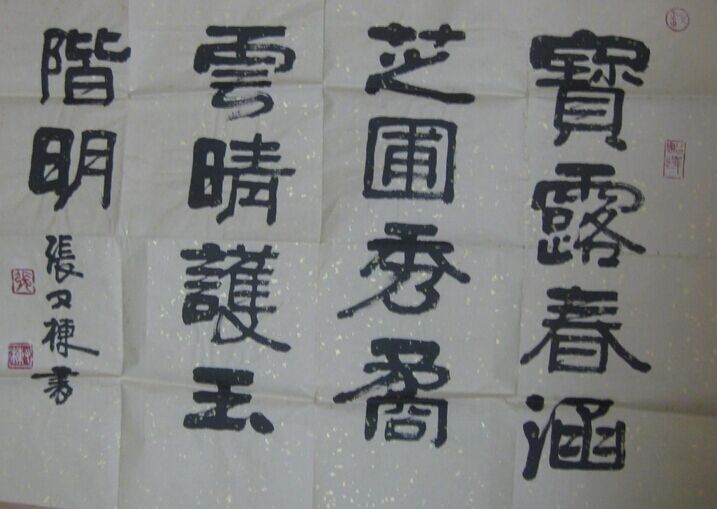 寶露春涵
芝圃秀矞
雲晴護玉
階明
張又棟書